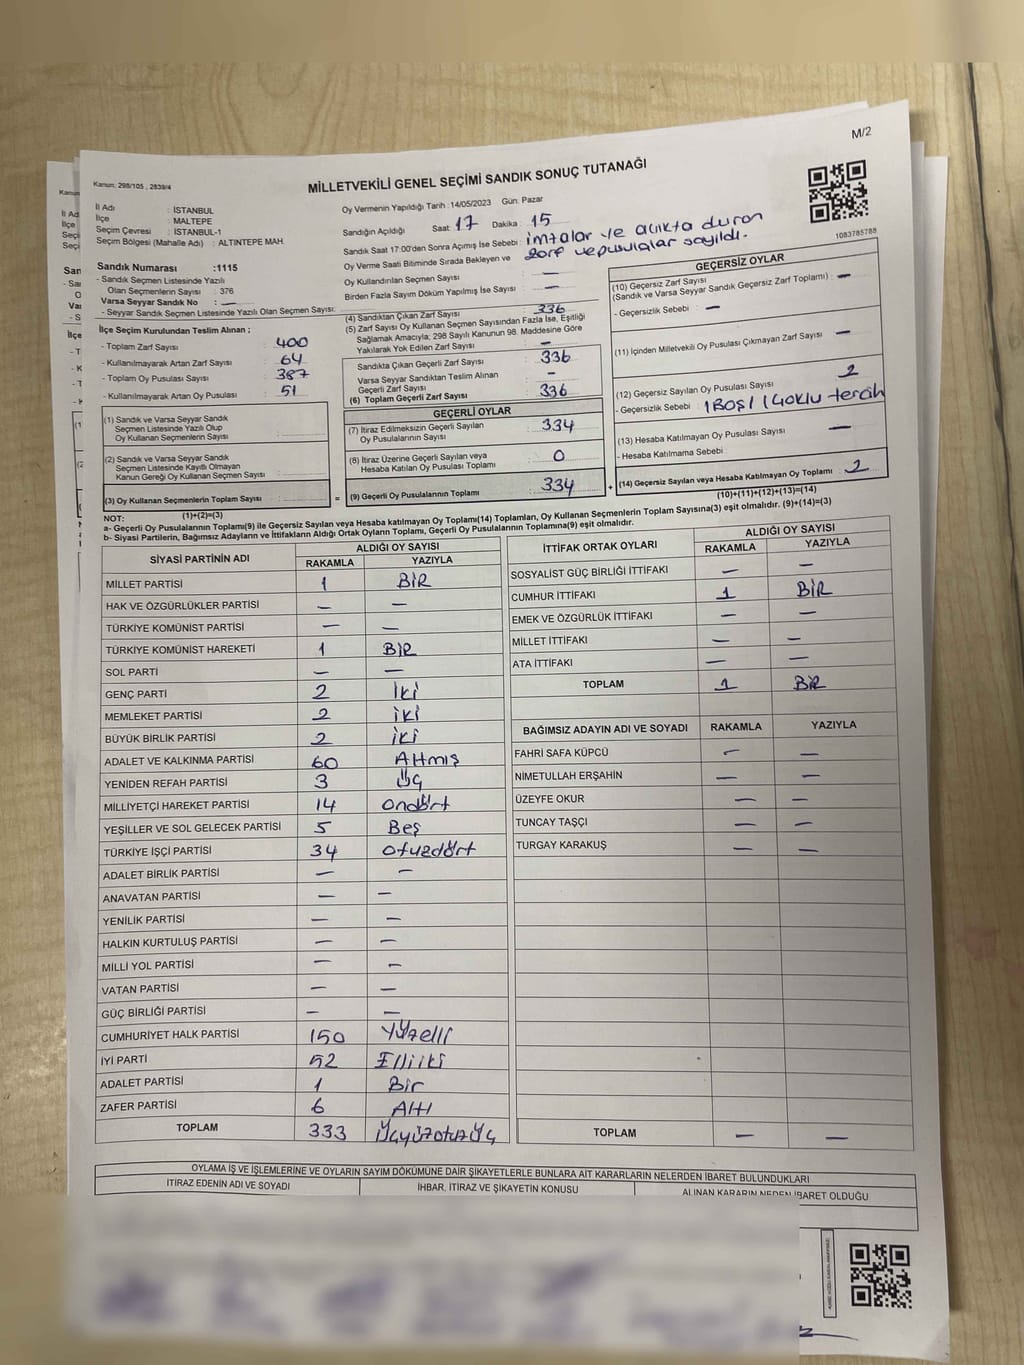 M/2
Kanun: 298/105 , 2839/4
MİLLETVEKİLİ GENEL SEÇİMİ SANDIK SONUÇ TUTANAĞI
İl Adı : İSTANBUL
İlçe : MALTEPE
Seçim Çevresi : İSTANBUL-1
Seçim Bölgesi (Mahalle Adı) : ALTINTEPE MAH.
Oy Vermenin Yapıldığı Tarih :14/05/2023 Gün: Pazar
Sandığın Açıldığı Saat 17 Dakika : 15
Sandık Saat 17:00'den Sonra Açımış İse Sebebi : imzalar ve açıkta duran
zarf ve pusulalar sayıldı.
Oy Verme Saati Bitiminde Sırada Bekleyen ve
Oy Kullandırılan Seçmen Sayısı —
Birden Fazla Sayım Döküm Yapılmış İse Sayısı : —
1083785788
Sandık Numarası :1115
- Sandık Seçmen Listesinde Yazılı
Olan Seçmenlerin Sayısı : 376
Varsa Seyyar Sandık No : —
- Seyyar Sandık Seçmen Listesinde Yazılı Olan Seçmen Sayısı:
İlçe Seçim Kurulundan Teslim Alınan ;
- Toplam Zarf Sayısı : 400
- Kullanılmayarak Artan Zarf Sayısı : 64
- Toplam Oy Pusulası Sayısı : 387
- Kullanılmayarak Artan Oy Pusulası : 51
(1) Sandık ve Varsa Seyyar Sandık
Seçmen Listesinde Yazılı Olup
Oy Kullanan Seçmenlerin Sayısı
(2) Sandık ve Varsa Seyyar Sandık
Seçmen Listesinde Kayıtlı Olmayan
Kanun Gereği Oy Kullanan Seçmen Sayısı
(3) Oy Kullanan Seçmenlerin Toplam Sayısı
(1)+(2)=(3)
(4) Sandıktan Çıkan Zarf Sayısı : 336
(5) Zarf Sayısı Oy Kullanan Seçmen Sayısından Fazla İse, Eşitliği
Sağlamak Amacıyla; 298 Sayılı Kanunun 98. Maddesine Göre
Yakılarak Yok Edilen Zarf Sayısı : —
Sandıkta Çıkan Geçerli Zarf Sayısı : 336
Varsa Seyyar Sandıktan Teslim Alınan
Geçerli Zarf Sayısı : —
(6) Toplam Geçerli Zarf Sayısı : 336
GEÇERLİ OYLAR
(7) İtiraz Edilmeksizin Geçerli Sayılan
Oy Pusulalarının Sayısı : 334
(8) İtiraz Üzerine Geçerli Sayılan veya
Hesaba Katılan Oy Pusulası Toplamı : 0
= (9) Geçerli Oy Pusulalarının Toplamı : 334 +
GEÇERSİZ OYLAR
(10) Geçersiz Zarf Sayısı
(Sandık ve Varsa Seyyar Sandık Geçersiz Zarf Toplamı) : —
- Geçersizlik Sebebi : —
(11) İçinden Milletvekili Oy Pusulası Çıkmayan Zarf Sayısı : —
(12) Geçersiz Sayılan Oy Pusulası Sayısı : 2
- Geçersizlik Sebebi : 1 BOŞ / 1 Çoklu tercih
(13) Hesaba Katılmayan Oy Pusulası Sayısı : —
- Hesaba Katılmama Sebebi
(14) Geçersiz Sayılan veya Hesaba Katılmayan Oy Toplamı : 2
(10)+(11)+(12)+(13)=(14)
NOT:
a- Geçerli Oy Pusulalarının Toplamı(9) ile Geçersiz Sayılan veya Hesaba katılmayan Oy Toplamı(14) Toplamları, Oy Kullanan Seçmenlerin Toplam Sayısına(3) eşit olmalıdır. (9)+(14)=(3)
b- Siyasi Partilerin, Bağımsız Adayların ve İttifakların Aldığı Ortak Oyların Toplamı, Geçerli Oy Pusulalarının Toplamına(9) eşit olmalıdır.
SİYASİ PARTİNİN ADI ALDIĞI OY SAYISI
RAKAMLA YAZIYLA
MİLLET PARTİSİ 1 BİR
HAK VE ÖZGÜRLÜKLER PARTİSİ — —
TÜRKİYE KOMÜNİST PARTİSİ — —
TÜRKİYE KOMÜNİST HAREKETİ 1 BİR
SOL PARTİ — —
GENÇ PARTİ 2 İki
MEMLEKET PARTİSİ 2 iki
BÜYÜK BİRLİK PARTİSİ 2 iki
ADALET VE KALKINMA PARTİSİ 60 Altmış
YENİDEN REFAH PARTİSİ 3 Üç
MİLLİYETÇİ HAREKET PARTİSİ 14 ondört
YEŞİLLER VE SOL GELECEK PARTİSİ 5 Beş
TÜRKİYE İŞÇİ PARTİSİ 34 otuzdört
ADALET BİRLİK PARTİSİ — —
ANAVATAN PARTİSİ — —
YENİLİK PARTİSİ — —
HALKIN KURTULUŞ PARTİSİ — —
MİLLİ YOL PARTİSİ — —
VATAN PARTİSİ — —
GÜÇ BİRLİĞİ PARTİSİ — —
CUMHURİYET HALK PARTİSİ 150 Yüzelli
İYİ PARTİ 52 Elliiki
ADALET PARTİSİ 1 Bir
ZAFER PARTİSİ 6 Altı
TOPLAM 333 Üçyüzotuzüç
İTTİFAK ORTAK OYLARI ALDIĞI OY SAYISI
RAKAMLA YAZIYLA
SOSYALİST GÜÇ BİRLİĞİ İTTİFAKI — —
CUMHUR İTTİFAKI 1 BİR
EMEK VE ÖZGÜRLÜK İTTİFAKI — —
MİLLET İTTİFAKI — —
ATA İTTİFAKI — —
TOPLAM 1 BİR
BAĞIMSIZ ADAYIN ADI VE SOYADI RAKAMLA YAZIYLA
FAHRİ SAFA KÜPCÜ — —
NİMETULLAH ERŞAHİN — —
ÜZEYFE OKUR — —
TUNCAY TAŞÇI — —
TURGAY KARAKUŞ — —
TOPLAM — —
OYLAMA İŞ VE İŞLEMLERİNE VE OYLARIN SAYIM DÖKÜMÜNE DAİR ŞİKAYETLERLE BUNLARA AİT KARARLARIN NELERDEN İBARET BULUNDUKLARI
İTİRAZ EDENİN ADI VE SOYADI İHBAR, İTİRAZ VE ŞİKAYETİN KONUSU ALINAN KARARIN NEDEN İBARET OLDUĞU